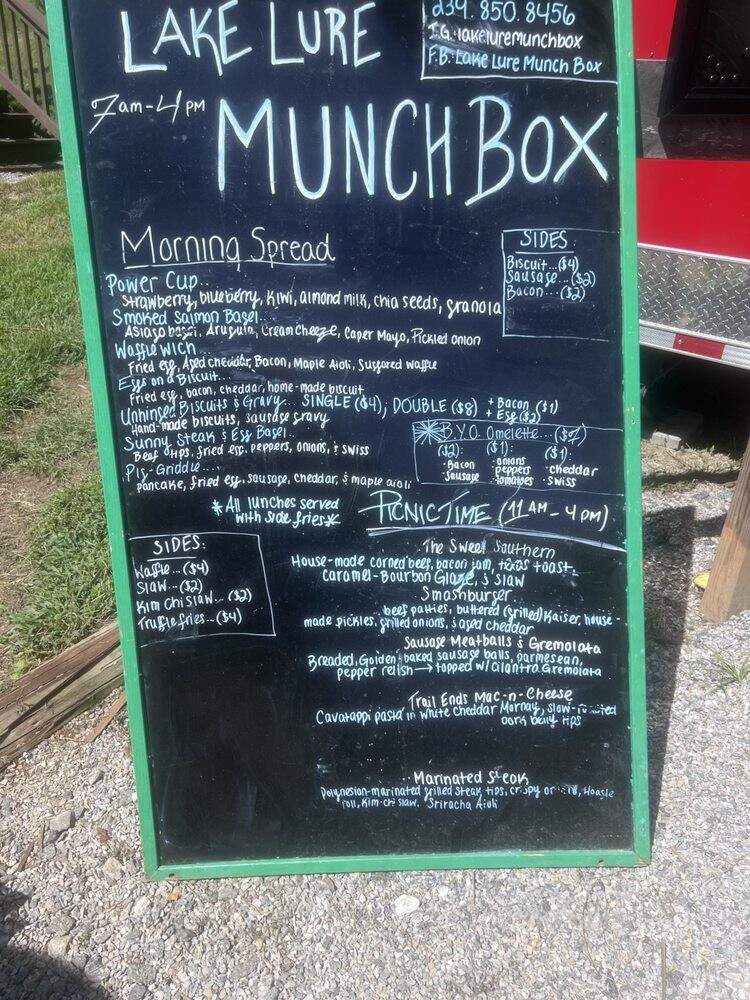 LAKE LURE
239.850.8456
I.G.: lakeluremunchbox
F.B.: Lake Lure Munch Box
7am-4PM
MUNCH BOX
Morning Spread
SIDES:
Biscuit...($4)
Sausage...($2)
Bacon...($2)
Power Cup..
Strawberry, blueberry, Kiwi, almond milk, chia seeds, granola
Smoked Salmon Bagel...
Asiago bagel, Arugula, Cream Cheeze, Caper Mayo, Pickled onion
Waffle Wich...
Fried egg, Aged cheddar, Bacon, Maple Aioli, Suggared Waffle
Eggs on a Biscuit...
Fried egg, bacon, cheddar, home-made biscuit
Unhinged Biscuits & Gravy... SINGLE ($4); DOUBLE ($8)
+ Bacon ($1)
+ Egg ($2)
Hand-made biscuits, sausage gravy
Sunny Steak & Egg Bagel..
Beef tips, fried egg, peppers, onions, & swiss
B.Y.O. Omelette...
($2): ($1): ($1):
·Bacon ·onions ·cheddar
·Sausage peppers ·swiss
·tomatoes
Pig-Griddle....
pancake, fried egg, sausage, cheddar, & maple aioli
* All lunches served
with side fries*
PICNIC TIME (11 AM - 4 PM)
SIDES:
Waffle...($4)
Slaw...($2)
Kim Chi Slaw...($2)
Truffle fries...($4)
The Sweet Southern
House-made corned beef, bacon jam, texas toast,
Caramel-Bourbon Glaze, & slaw
Smashburger
beef patties, buttered (grilled) Kaiser, house-
made pickles, grilled onions, & aged cheddar
Sausage Meatballs & Gremolata
Breaded, Golden-baked sausage balls, parmesean,
pepper relish → topped w/ Cilantro Gremolata
Trail Ends Mac-n-Cheese
Cavatappi pasta in White Cheddar Mornay, slow-roasted
pork belly tips
..Marinated Steak
Polynesian-marinated grilled steak tips, crispy Hoagie
roll, Kim-chi slaw. Sriracha Aioli